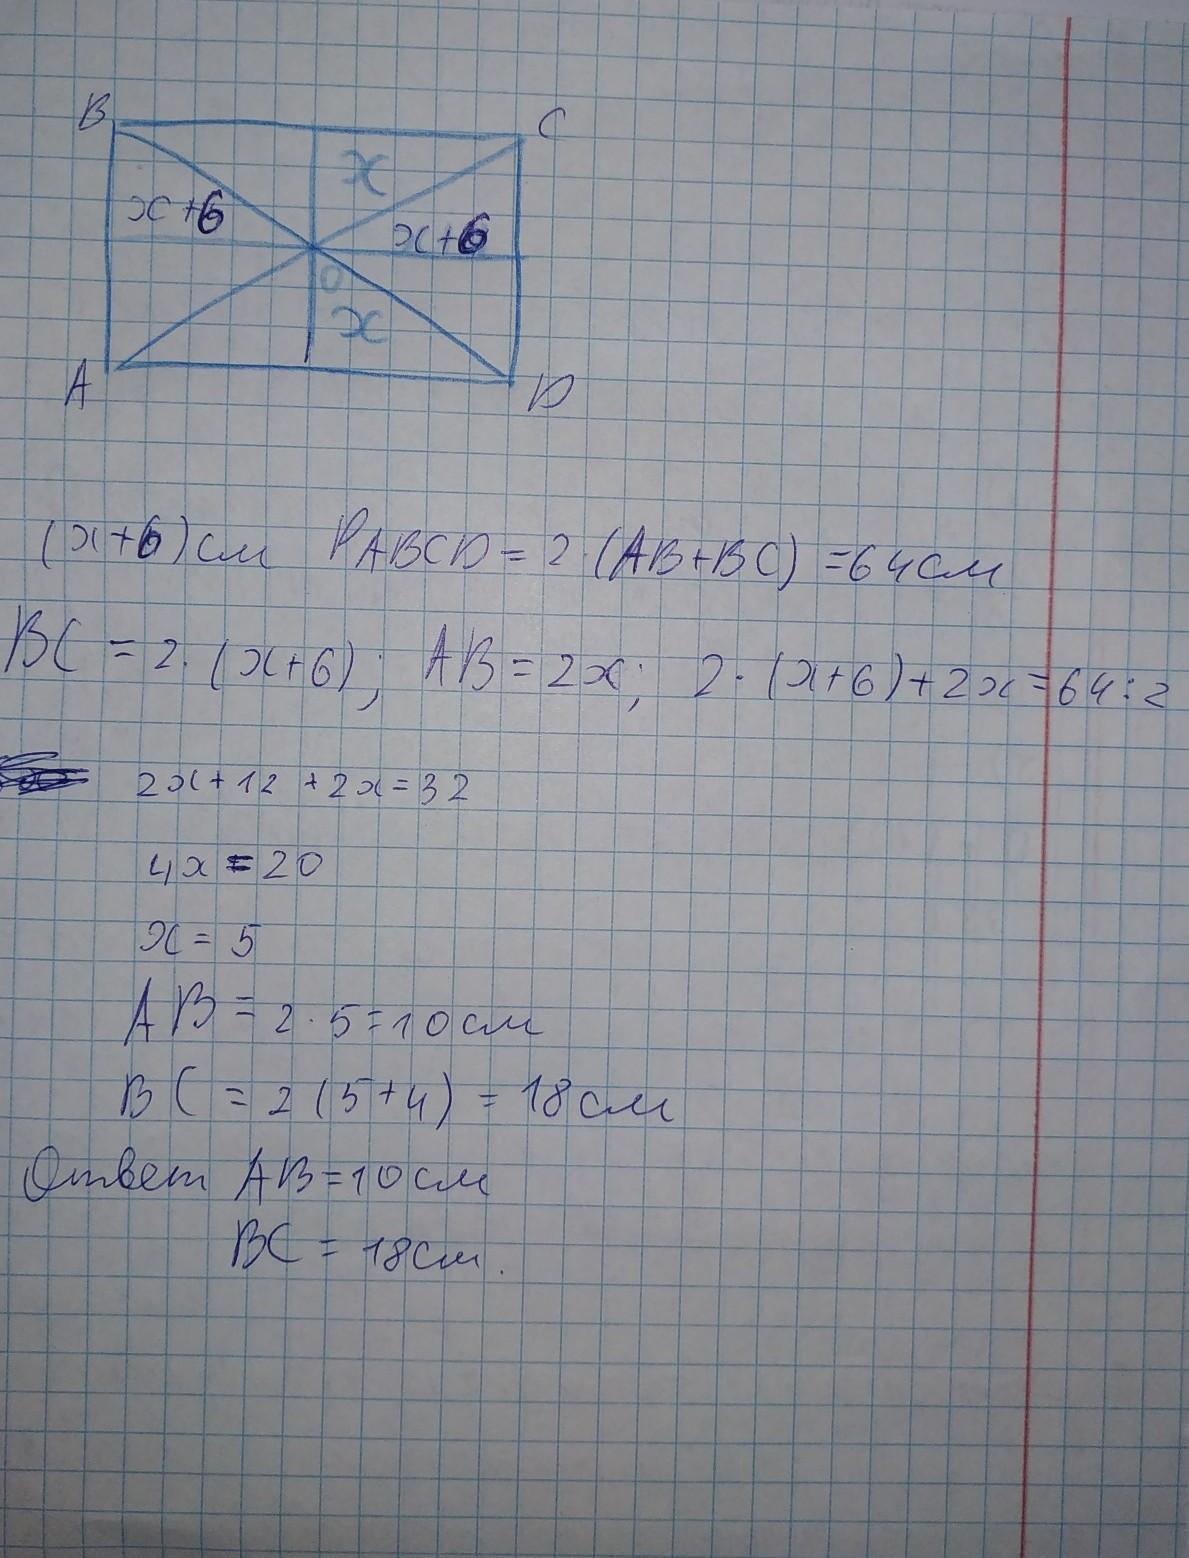 B C
x
x+6 x+6
O
x
A D
(x+6)см P ABCD = 2·(AB+BC) =64см
BC = 2·(x+6); AB=2x; 2·(x+6)+2x=64:2
2x+12+2x=32
4x=20
x=5
AB=2·5=10см
BC=2(5+4)=18см
Ответ AB=10см
BC=18см.